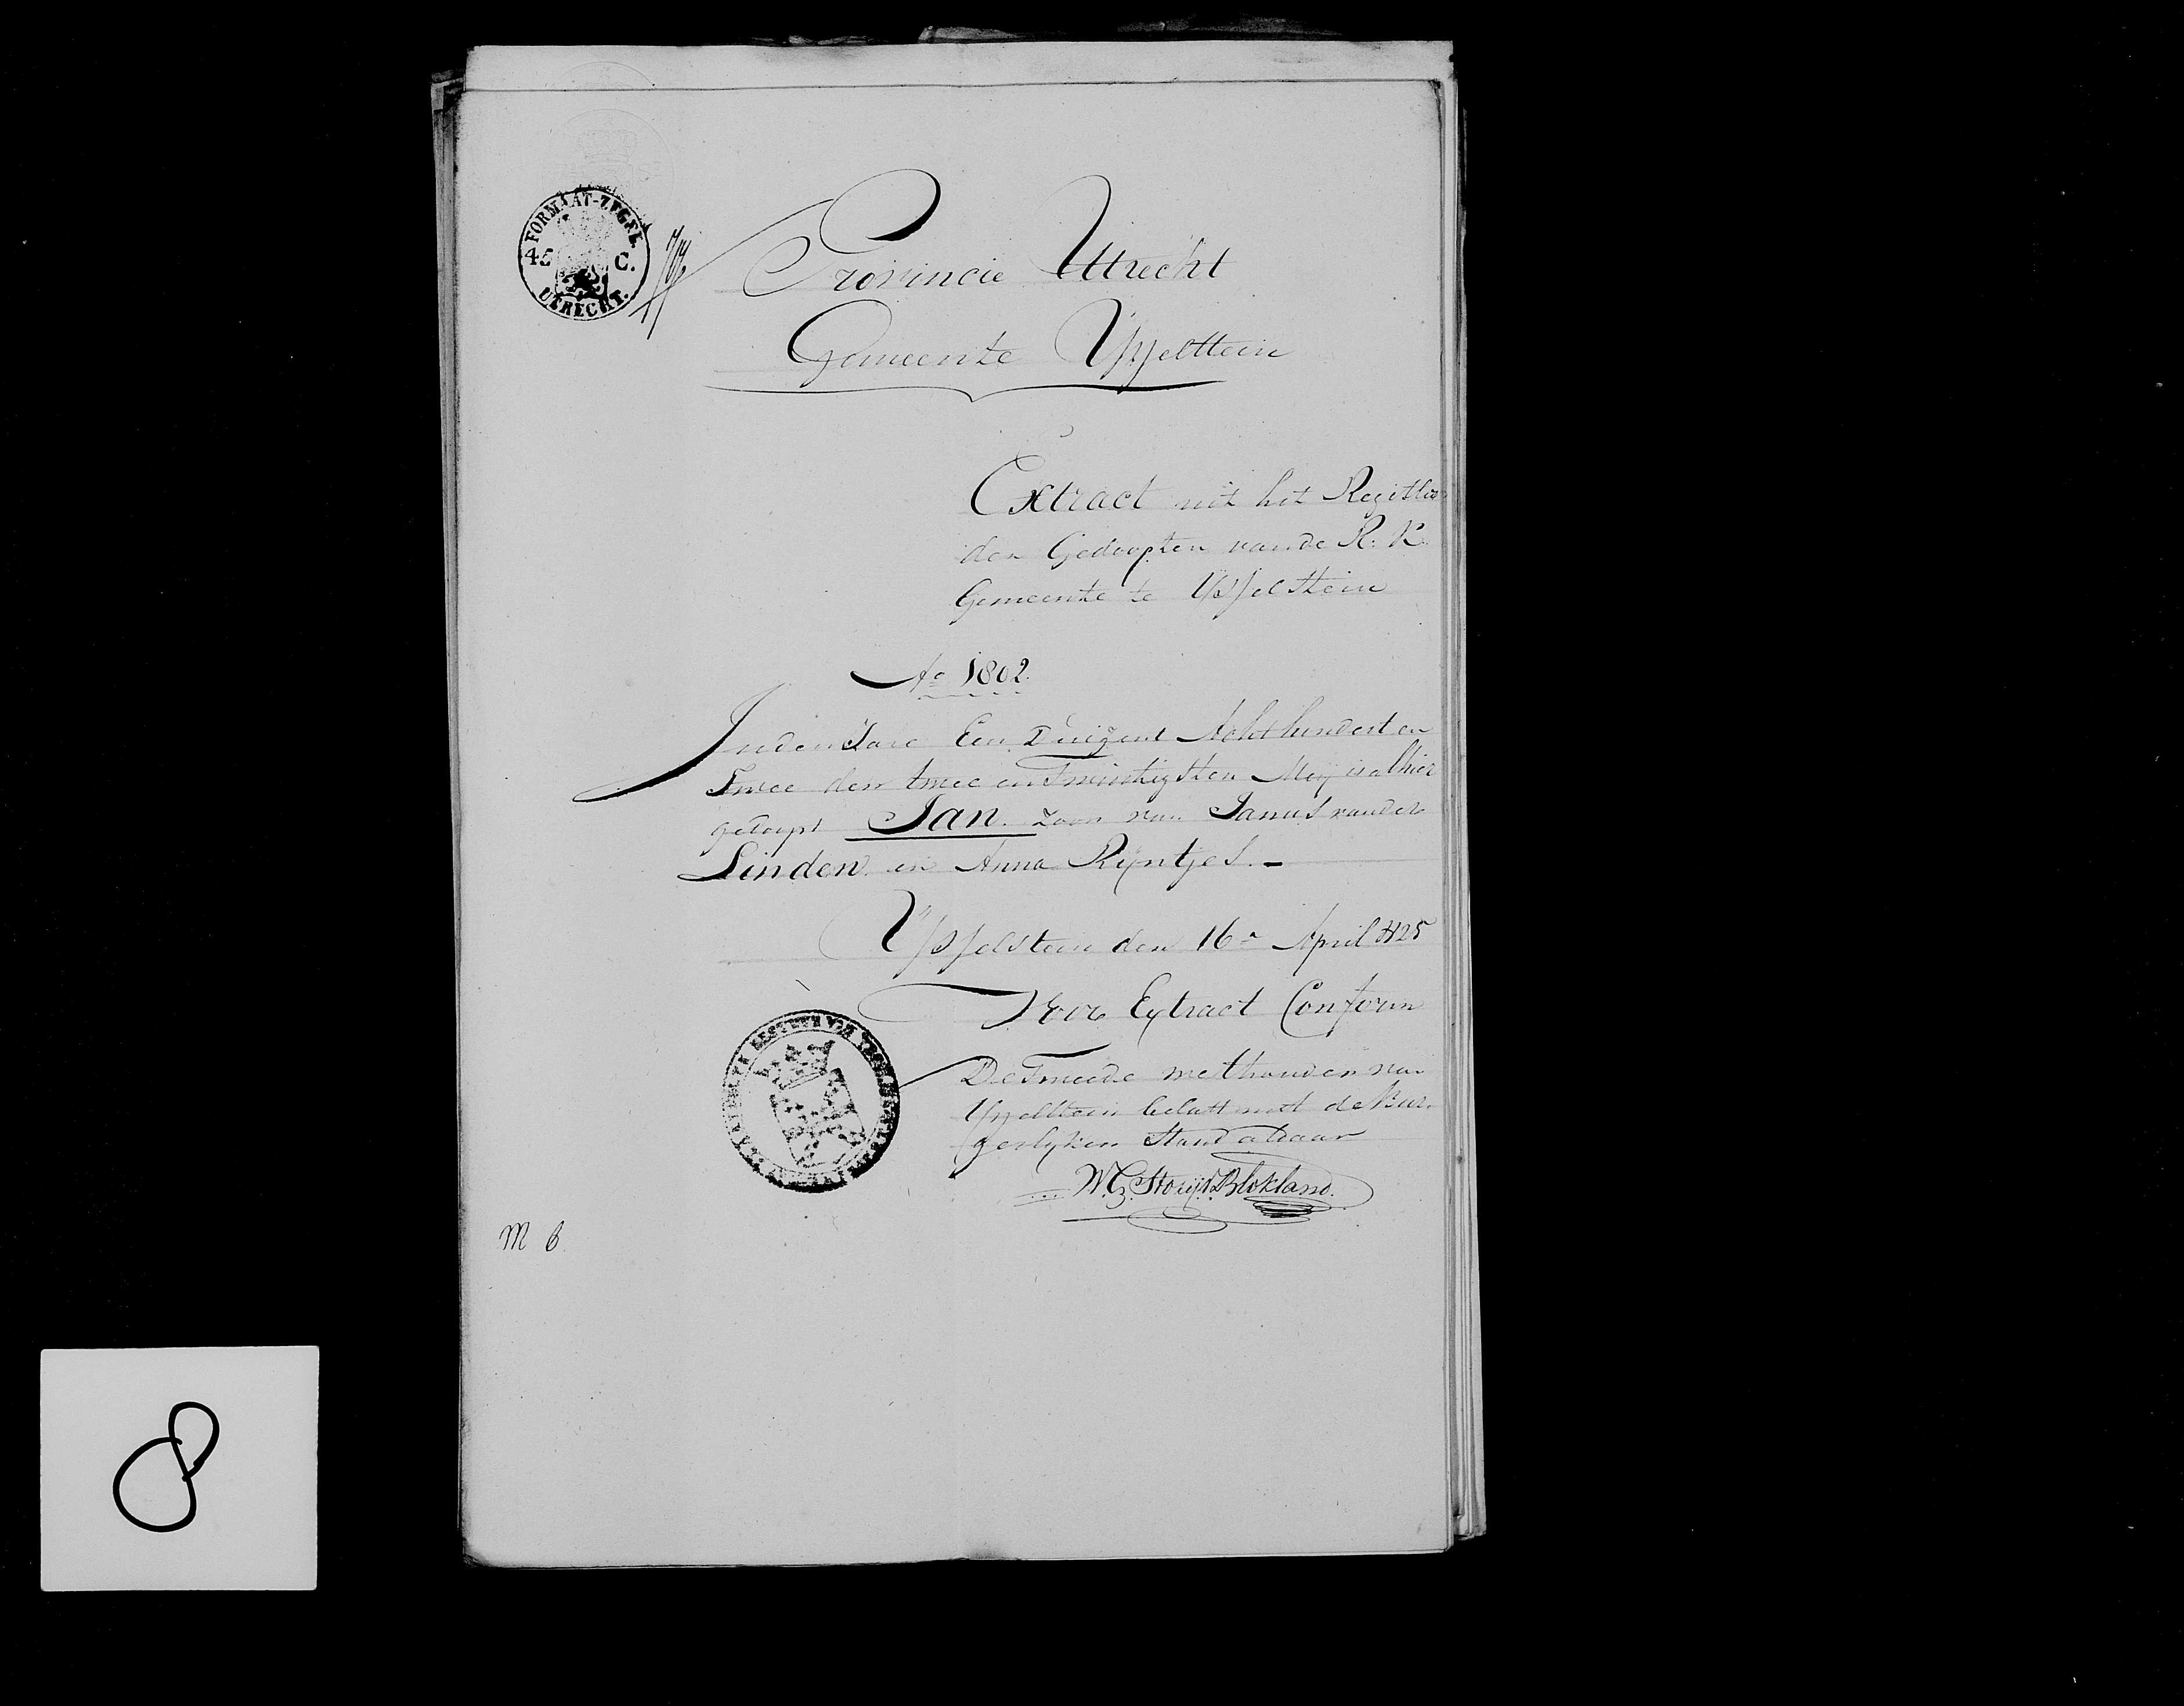 FORMAAT-ZEGEL.
45 C.
UTRECHT.
Provincie Uttrecht
Gemeente Ysselstein
Extract uit het Register
der Gedoopten van de R: K
Gemeente te Ysselstein
Ao 1802.
In den Jare Een Duizent Achthundert en
Twee den twee en Twintigsten Meij is alhier
gedoopt Jan. Zoon van Janus vander
Linden en Anna Rijntjes. –
Ysselstein den 16e April 1825
Voor Extract Conform
De Tweede wethouder van
Ysselstein belast met de Bur-
gerlyken Stand aldaar
M B
8